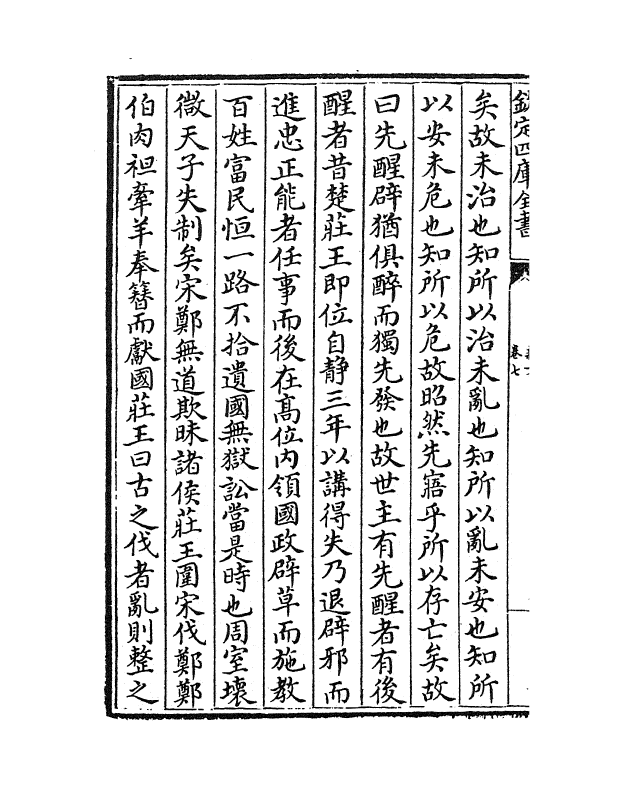 欽定四庫全書
卷七
矣故未治也知所以治未亂也知所以亂未安也知所
以安未危也知所以危故昭然先寤乎所以存亡矣故
曰先醒辟猶俱醉而獨先發也故世主有先醒者有後
醒者昔楚莊王即位自静三年以講得失乃退辟邪而
進忠正能者任事而後在髙位内領國政辟草而施教
百姓富民恒一路不拾遺國無獄訟當是時也周室壊
微天子失制矣宋鄭無道欺昧諸侯莊王圍宋伐鄭鄭
伯肉袒牽羊奉簮而獻國莊王曰古之伐者亂則整之